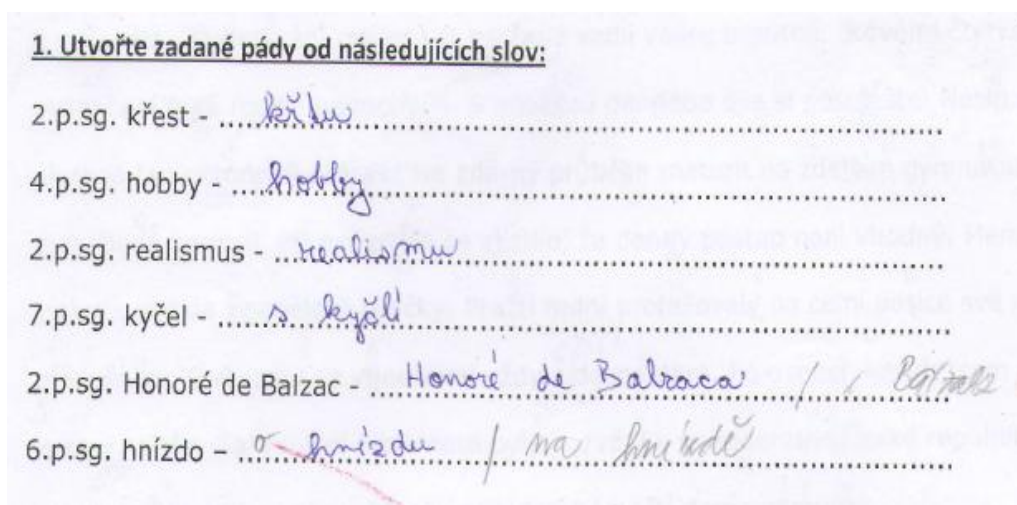 1. Utvořte zadané pády od následujících slov:
2.p.sg. křest - křtu
4.p.sg. hobby - hobby
2.p.sg. realismus - realismu
7.p.sg. kyčel - s kyčlí
2.p.sg. Honoré de Balzac - Honoré de Balzaca /
6.p.sg. hnízdo – o hnízdu / na hnízdě